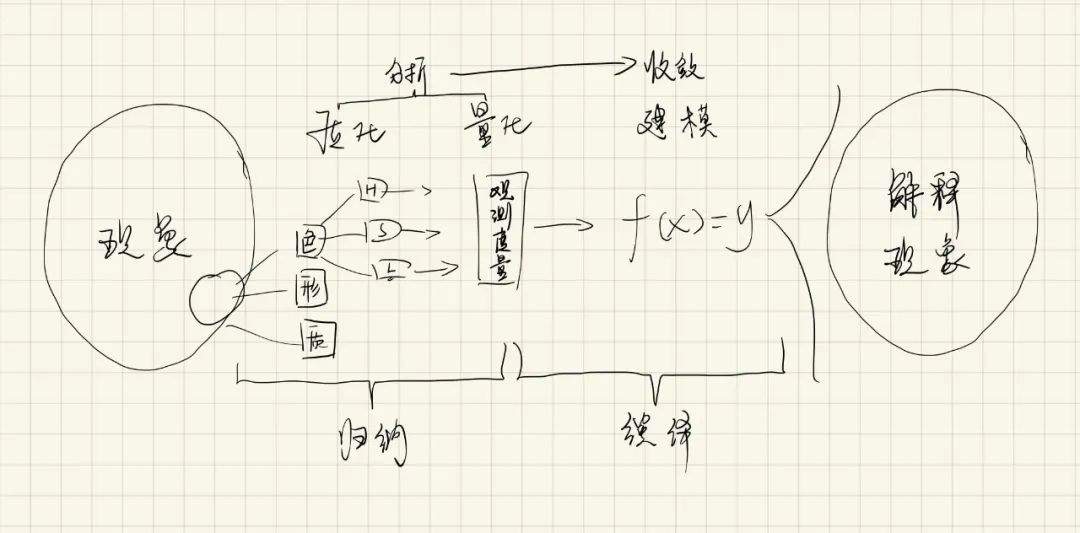 分析 → 收敛
质化 量化 建模
现象
色 H S L
形
质
观测度量
f(x)=y
解释
现象
归纳
演绎